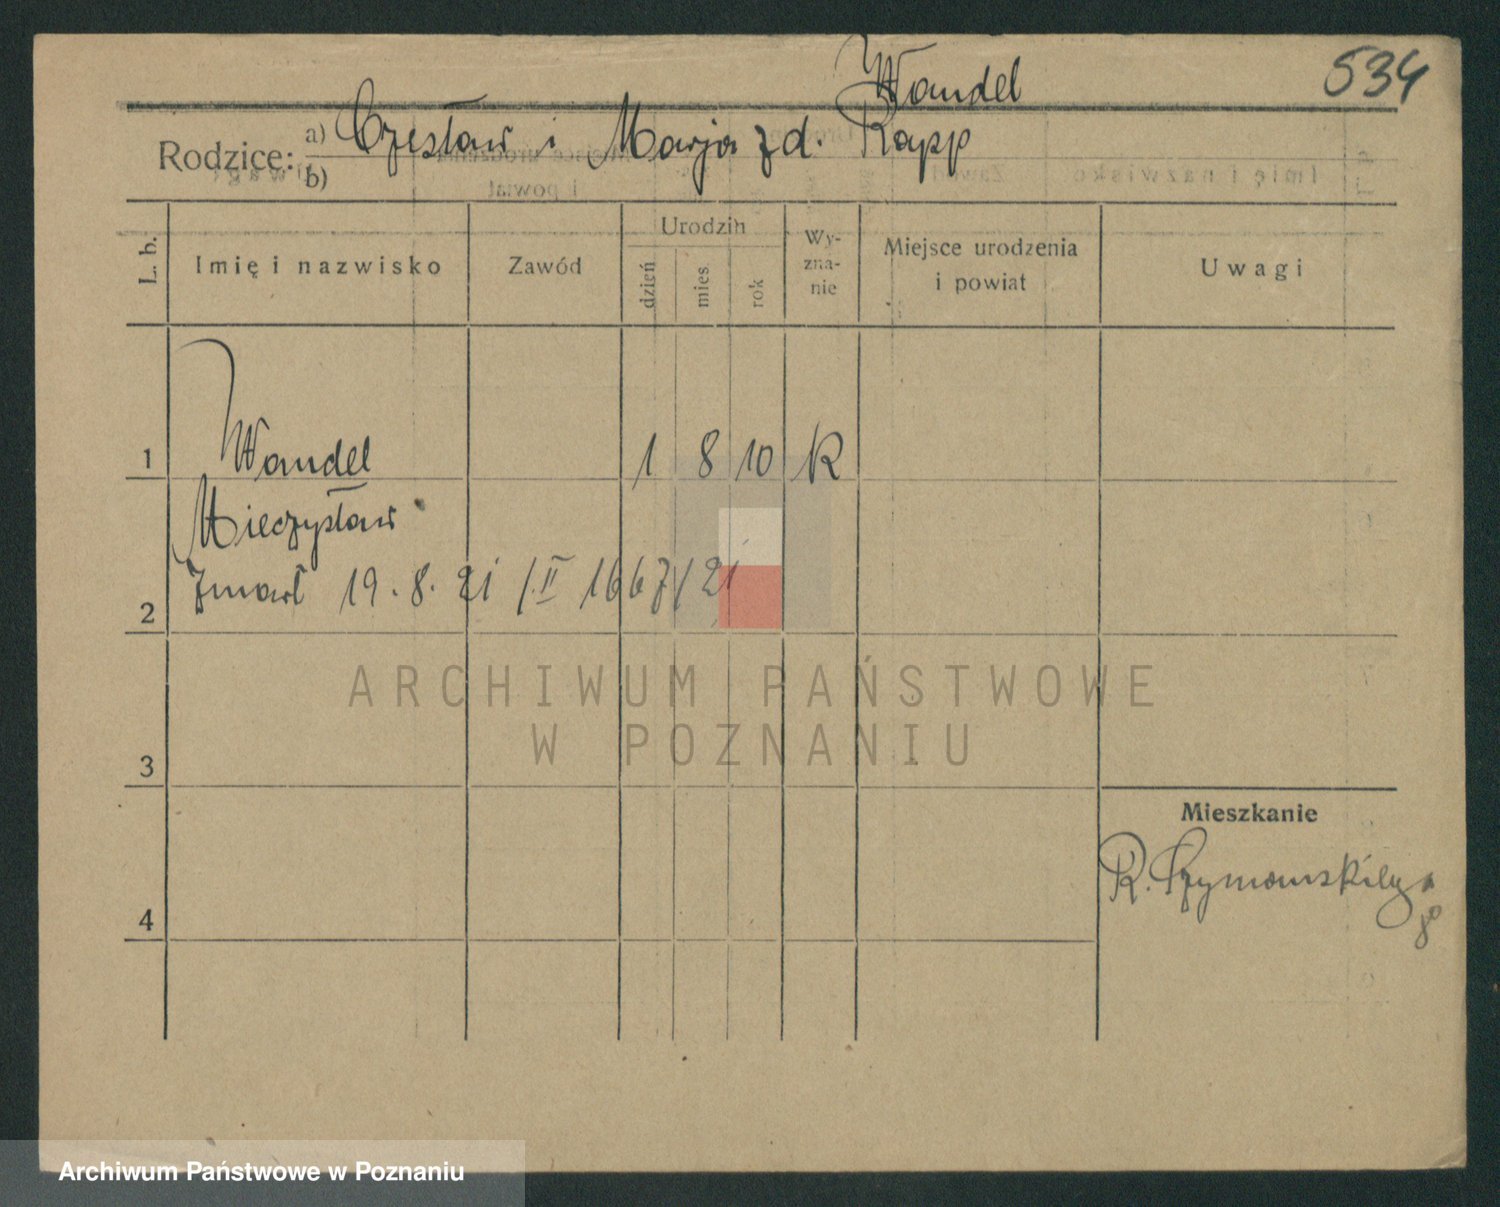 Wandel
534
Rodzice: a) Czesław i Marja z d. Rapp
b)
L. b.
Imię i nazwisko
Zawód
Urodzin
dzień
mies
rok
Wy-
zna-
nie
Miejsce urodzenia
i powiat
Uwagi
1 Wandel 1 8 10 K
Mieczysław
2 Zmarł 19.8.21 /.II 1667/21
ARCHIWUM PAŃSTWOWE
W POZNANIU
3
Mieszkanie
4
Archiwum Państwowe w Poznaniu